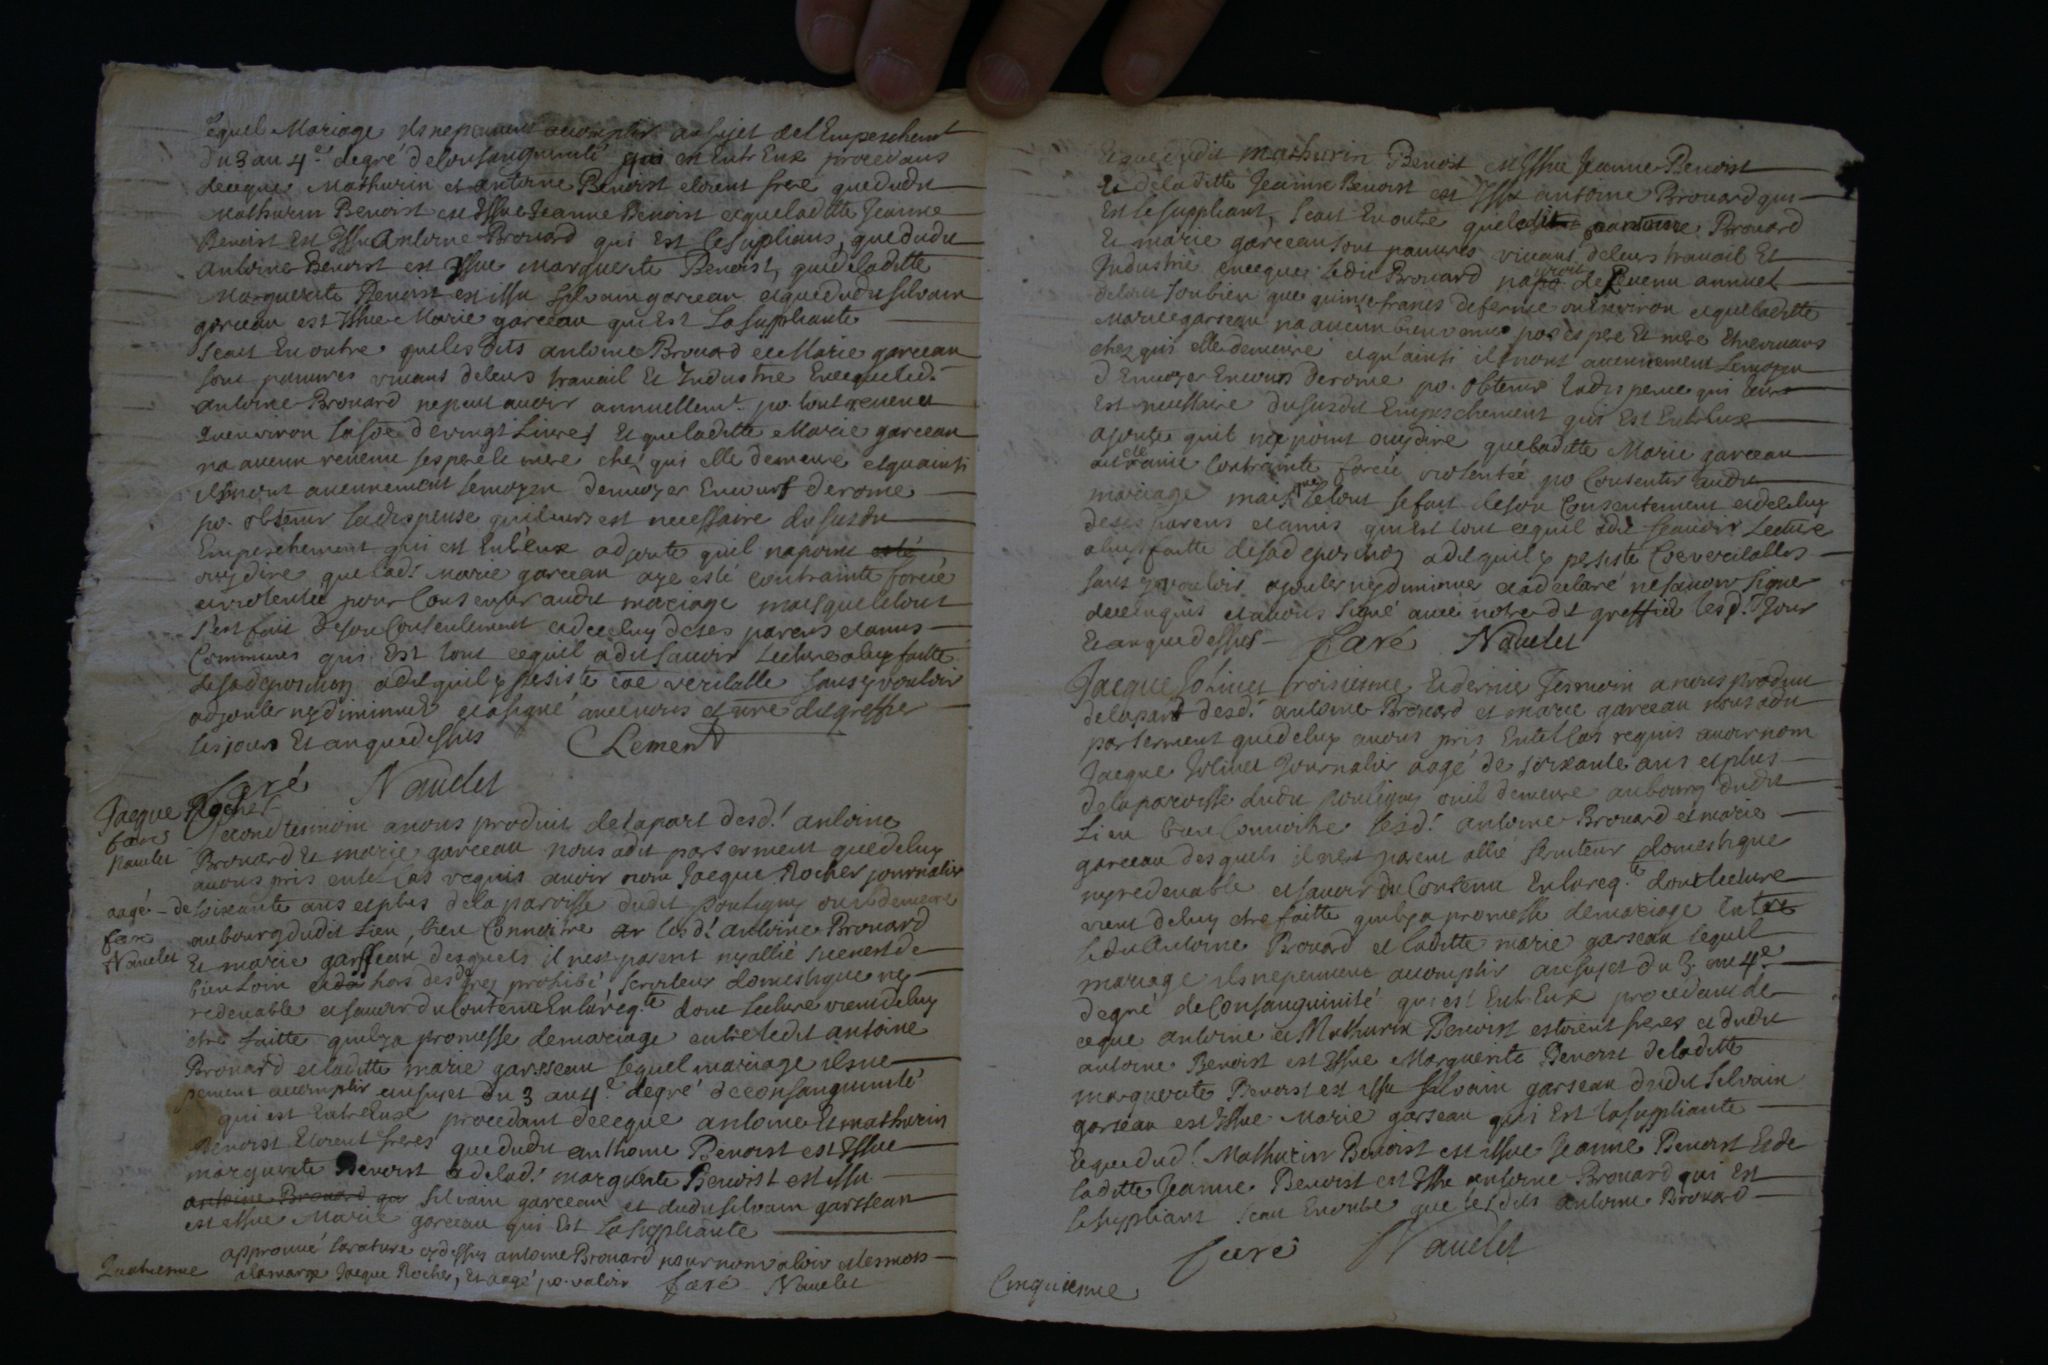 lequel Mariage ils ne peuvent accomplir au sujet de l'Empeschemt
du 3 au 4e degré de Consanguinité qui est Entr Eux procedans
de ceque Mathurin et antoine Benoist etoient frere que dudit
Mathurin Benoist est Issue Jeanne Benoist et que laditte Jeanne
Benoist Est Issu Antoine Brouard qui Est le supliant, que dudit
antoine Benoist est Issue marguerite Benoist, que de laditte
Marguerite Benoist est issu Silvain garceau et que dudit silvain
garceau est Issue Marie garceau qui Est La suppliante
scait En outre que les dits antoine Brouard et Marie garceau
sont pauvres vivans de leurs travail Et Industrie En ce que led.
antoine Brouard ne peut avoir annuellemt. po. tout revenu
qu'environ la soe de vingt Livres Et que laditte Marie garceau
na aucun revenu ses pere et mere chez qui elle demeure et qu ainsi
ils n'ont aucunnement le moyen d'envoyer En cour de rome
po. obtenir la dispense qui leurs est necessaire du susdit
Empeschement qui est Entr'eux adjoute qu'il na point esté
ouy dire que lad. Marie garceau aye esté contrainte forcée
et violentée pour Consentir audit mariage mais que le tout
s'est fait de son Consentement et de celuy de ses parens et amis
Communs qui Est tout ce quil a dit scavoir Lecture a luy faitte
de sa deposition a dit quil y persiste coe veritable sans y vouloir
adjouter ny diminuer et a signé avec nous et nre dit greffier
les jour Et an que dessus Clement
Faré Naudet
Jacque Rocher
Second tesmoin a nous produit de la part desd. antoine
faré
Naudet
Brouard Et marie garceau nous a dit par serment que de luy
avons pris en tel Cas requis avoir nom Jacque Rocher journalier
aagé - de soixante ans et plus de la paroisse dudit pouligny ou il demeure
faré
au bourg dudit Lieu, bien Connoitre les d. antoine Brouard
Naudet
Et marie garsseau desquels il nest parent ny allié si ce nest de
bien Loin et hors des degrez prohibé serviteur domestique ny
redevable et scavoir du Contenu En la reqte dont Lecture vient de luy
etre faitte quil y a promesse de mariage entre ledit antoine
Brouard et laditte marie garsseau lequel mariage ils ne
peuvent accomplir au sujet du 3 au 4e degré de consanguinité
qui est Entr Eux procedant de ceque antoine Et mathurin
Benoist Etoient freres que dudit anthoine Benoist est Issue
marguerite Benoist et de lad. marguerite Benoist est issu
antoine Brouard qui silvain garceau et dudit silvain garsseau
est issue Marie garceau qui Est La suppliante
approuvé la rature cy dessus antoine Brouard pour non valoir et les mots
a la marge Jacque Rocher, Et aagé po. valoir Faré Naudet
Quatriesme
Et que dudit mathurin Benoist est Issue Jeanne Benoist
Et de laditte Jeanne Benoist est Issu antoine Brouard qui
Est le suppliant, scait En outre que ledit antoine Brouard
Et marie garceau sont pauvres vivans de leurs travail Et
Industrie en ceque ledit Brouard na de Revenu annuel
de tout son bien que quinze francs de ferme ou Environ et que laditte
Marie garseau na aucun bien ses pere Et mere Etant vivans
chez qui elle demeure et qu'ainsi ils n'ont aucunement Le moyen
d Envoyer En cour de rome po. obtenir la dispence qui leurs
Est necessaire du susdit Empeschement qui Est Entr Eux
ajoute quil na point ouy dire que laditte Marie garceau
aie été Contrainte forcée violentée po Consentir audit
mariage mais que le tout se fait de son Consentement et de celuy
de ses parens et amis qui Est tout ce quil a dit scavoir Lecture
a luy faitte de sa deposition a dit quil y persiste Coe veritable
sans y vouloir ajouter ny diminuer et a declaré ne scavoir signer
de ce enquis et avons signé avec notre dit greffier lesd. Jour
Et an que dessus Faré Naudet
Jacque Jolivet troisiesme Et dernier Tesmoin a nous produit
de la part desd. antoine Brouard et marie garceau nous a dit
par serment que de luy avons pris En tel Cas requis avoir nom
Jacque Jolivet Journalier aagé de soixante ans et plus
de la paroisse dudit pouligny ou il demeure au bourg dudit
Lieu bien Connoitre lesd. antoine Brouard et marie
garceau desquels il n'est parent allié serviteur domestique
ny redevable et scavoir du Contenu En la reqte dont lecture
vient de luy etre faitte quil y a promesse de mariage Entre
ledit Antoine Brouard et laditte marie garseau lequel
mariage ils ne peuvent accomplir au sujet du 3 au 4e
degré de Consanguinité qui est Entr Eux procedant de
ceque antoine et Mathurin Benoist estoient freres et dudit
antoine Benoist est Issue Marguerite Benoist de laditte
marguerite Benoist est issu Silvain garseau dudit Silvain
garseau est Issue Marie garseau qui Est la suppliante
Et que dud. Mathurin Benoist est issue Jeanne Benoist Et de
laditte Jeanne Benoist est Issu antoine Brouard qui Est
le suppliant scait En outre que les dits antoine Brouard
Faré Naudet
Cinquiesme